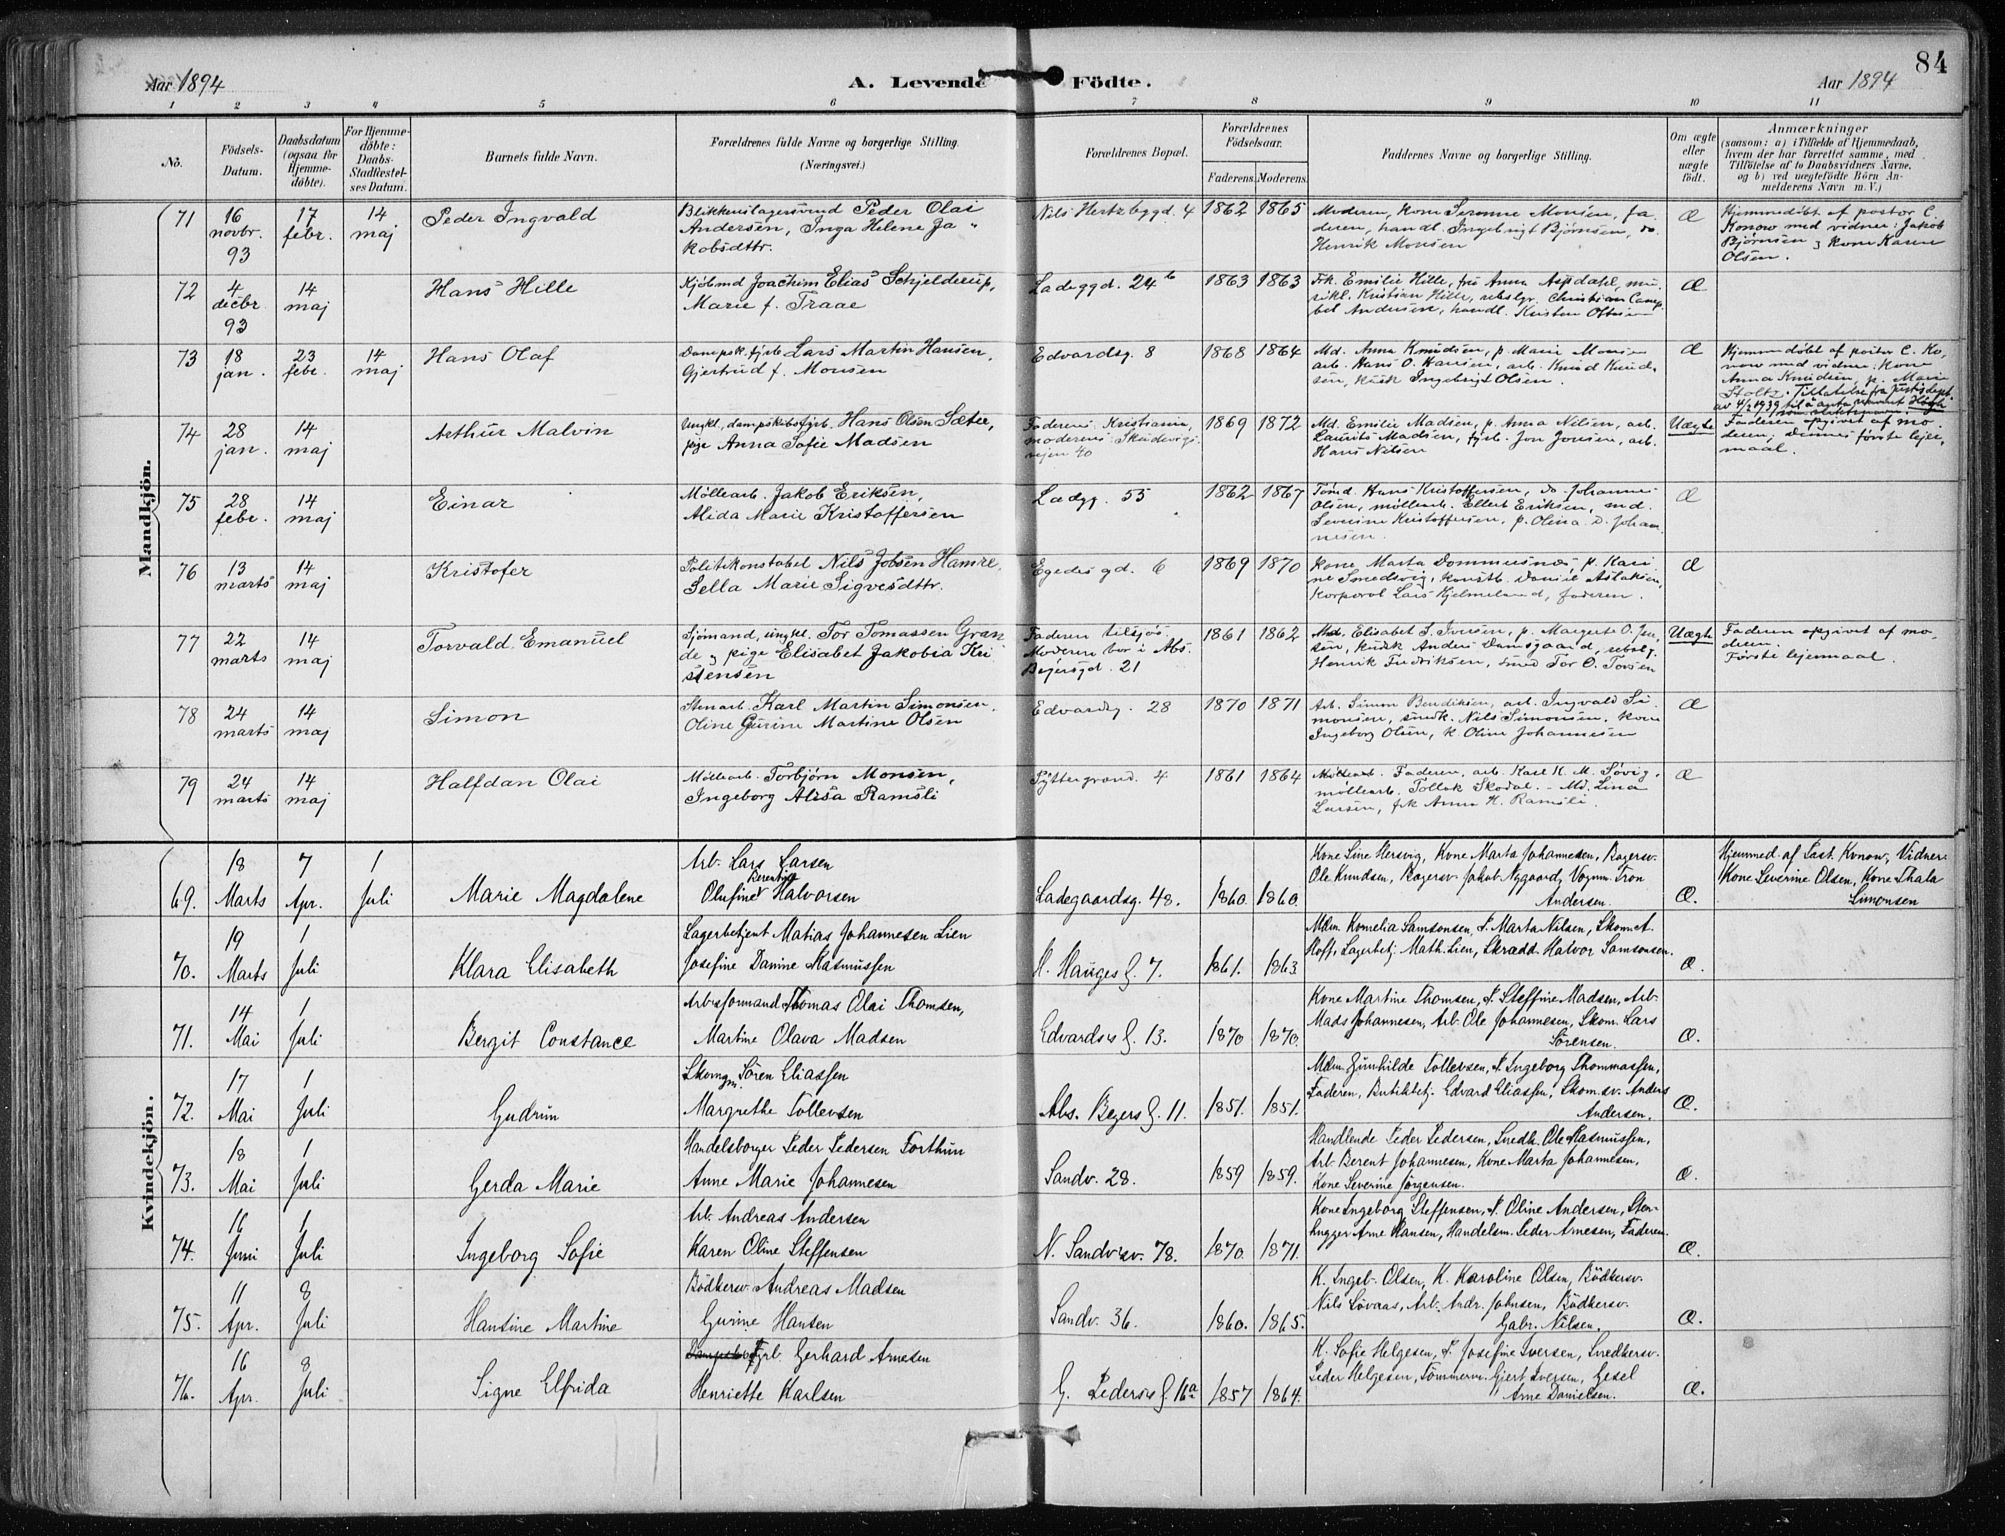 84
Aar 1894
A. Levende Födte.
Aar 1894
1 2 3 4 5 6 7 8 9 10 11
No.
Födsels-
Datum.
Daabsdatum
(ogsaa for
Hjemme-
döbte).
For Hjemme-
döbte:
Daabs-
Stadfæstel-
ses Datum.
Barnets fulde Navn.
Forældrenes fulde Navne og borgerlige Stilling
(Næringsvei.)
Forældrenes Bopæl.
Forældrenes
Födselsaar.
Faderens. Moderens.
Faddernes Navne og borgerlige Stilling.
Om ægte
eller
uægte
født.
Anmærkninger
(saasom: a) i Tilfælde af Hjemmedaab,
hvem der har forrettet samme, med
Tilföielse af to Daabsvidners Navne,
og b) ved uægtefödte Börn An-
melderens Navn m. V.)
Mandkjön.
71
16
novbr.
93
17
febr.
14
maj
Peder Ingvald
Blikkenslagersvend Peder Olai
Andersen, Inga Helene Ja-
kobsdttr.
Nils Hertzbggd. 4
1862 1865
Moderen, kone Serenne Monsen, fa-
deren, handl. Ingebrigt Bjørnsen, do.
Henrik Monsen
Æ
Hjemmedøbt af pastor C.
Konow med vidner: Jakob
Bjørnsen og kone Karen
Olsen.
72
4
decbr.
93
14
maj
Hans Hille
Kjøbmd Joachim Elias Schjelderup,
Marie f. Traae
Ladeggd. 24b
1863 1863
Frk. Emilie Hille, fru Anna Aspdahl, mu-
sikl. Kristian Hille, rebslgr. Christian Camp-
bel Andersen, handl. Kristen Oftesen
Æ
73
18
jan.
23
febr.
14
maj
Hans Olaf
Dampsk.fyrb. Lars Martin Hansen,
Gjertrud f. Monsen
Edvardsg. 8
1868 1864
Md. Anna Knudsen, p. Marie Monsen
arb. Hans O. Hansen, arb. Knud Knud-
sen, kusk Ingebrigt Olsen.
Æ
Hjemmedøbt af pastor C. Ko-
now med vidner: kone
Anna Knudsen, p. Marie
Stoltz. Tillatelse fra Justisdept.
av 4/2 1939 til å anta navnet Høgh
som slektsnavn.
74
28
jan.
14
maj
Arthur Malvin
Ungkl, dampskibsfyrb. Hans Olsen Sæter,
pige Anna Sofie Madsen
Faderens: Kristiania,
moderens Skudevigs-
vejen 40
1869 1872
Md. Emilie Madsen, p. Anna Nilsen, arb.
Laurits Madsen, fyrb. Jon Jonsen, arb.
Hans Nilsen
Uægte
Faderen opgivet af mo-
deren; dennes første lejer-
maal.
75
28
febr.
14
maj
Einar
Møllearb. Jakob Eriksen,
Alida Marie Kristoffersen
Ladgg. 55
1862 1867
Tømd. Hans Kristoffersen, do. Johannes
Olsen, møllearb. Ellert Eriksen, md.
Severine Kristoffersen, p. Olina D. Johan-
nesen.
Æ
76
13
marts
14
maj
Kristofer
Politikonstabel Nils Jobsen Hamre,
Sella Marie Sigvesdttr.
Egedesgd. 6
1869 1870
Kone Marta Dommersnes, p. Kari-
ne Smedsvig, konstb. Daniel Aslaksen,
Korporal Lars Hjelmeland, faderen.
Æ
77
22
marts
14
maj
Torvald Emanuel
Sjømand, ungkl. Tor Tomassen Gran-
de og pige Elisabet Jakobia Kri
stensen
Faderen tilsjøs
Moderen bor i Abs.
Bejersgd. 21
1861 1862
Md. Elisabet S. Iversen, p. Margrete O. Jen-
sen, kusk Anders Damsgaard, rebslg.
Henrik Fredriksen, smed Tor O. Torsen
Uægte
Faderen opgivet af mo-
deren.
Første lejermaal.
78
24
marts
14
maj
Simon
Stenarb. Karl Martin Simonsen,
Oline Gurine Martine Olsen
Edvardsg. 28
1870 1871
Arb. Simon Bendiksen, arb. Ingvald Si-
monsen, snedk. Nils Simonsen, kone
Ingeborg Olsen, k Oline Johannesen
Æ
79
24
marts
14
maj
Halfdan Olai
Møllearb. Torbjørn Monsen,
Ingeborg Alisa Ramsli
Pyttergrand. 4
1861 1864
Møllearb. Faderen, arb. Karl K. M. Søvig,
møllearb. Tollak Skodal. - Md. Lina
Larsen, frk Anna H. Ramsli.
Æ
Kvindekjön.
69.
18
Marts
7
Apr.
1
Juli
Marie Magdalene
Arb. Lars Larsen
Berentine
Olufine Halvorsen
Ladegaardsg. 48.
1860. 1860.
Kone Sine Hersvig, Kone Marta Johannesen, Bagersv.
Ole Knudsen, Bagersv. Jakob Nygaard, Vognm. Tron
Andersen.
Æ.
Hjemmed. af Past. Konow, Vidner:
Kone Severine Olsen, Kone Thala
Simonsen
70.
19
Marts
1
Juli
Klara Elisabeth
Lagerbetjent Matias Johannesen Lien
Josefine Danine Rasmussen
H. Hauges G. 7.
1861. 1863
Mdm. Kornelia Samsonsen, P. Marta Nilsen, Skom. A.
Hoff, Lagerbetj. Math. Lien, Skradd. Halvor Samsonsen.
Æ.
71.
14
Mai
1
Juli
Bergit Constance
Arb.sformand Thomas Olai Thomsen,
Martine Olava Madsen
Edvardses G. 13.
1870 1870.
Kone Martine Thomsen, P. Steffine Madsen, Arb.
Mads Johannesen, Arb. Ole Johannesen, Skom. Lars
Sörensen.
Æ.
72.
17
Mai
1
Juli
Gudrun
Skomgm. Sören Eliassen
Margrethe Tollevsen
Abs. Beyers G. 11.
1851. 1851.
Mdm. Gunhilde Tollevsen, P. Ingeborg Thommassen,
Faderen, Butikbetj. Edvard Eliassen, Skom.sv. Anders
Andersen.
Æ.
73.
18
Mai
1
Juli
Gerda Marie
Handelsborger Peder Pedersen Forthun
Anne Marie Johannesen
Sandv. 28.
1859 1859.
Handlende Peder Pedersen, Snedk. Ole Rasmussen,
Arb. Berent Johannesen, Kone Marta Johannesen,
Kone Severine Jörgensen.
Æ.
74.
16
Juni
1
Juli
Ingeborg Sofie
Arb. Andreas Andersen
Karen Oline Steffensen
N. Sandv.sv. 78.
1870. 1871.
Kone Ingeborg Steffensen, P. Oline Andersen, Sten-
hugger Arne Hansen, Handelsm. Peder Arnesen, Faderen.
Æ.
75.
11
Apr.
8
Juli
Hansine Martine
Bödkersv. Andreas Madsen
Gurine Hansen
Sandv. 36.
1860. 1865.
K. Ingeb. Olsen, K. Karoline Olsen, Bödkersv.
Nils Lövaas, Arb. Andr. Johnsen, Bödkersv.
Gabr. Nilsen.
Æ.
76.
16
Apr.
8
Juli
Signe Elfrida
Fyrb. Gerhard Arnesen
Henriette Karlsen
G. Peders. G. 16a
1857 1864.
K. Sofie Helgesen, P. Josefine Iversen, Snedkersv.
Peder Helgesen, Tömmerm. Gjert Iversen, Gesel
Arne Danielsen.
Æ.